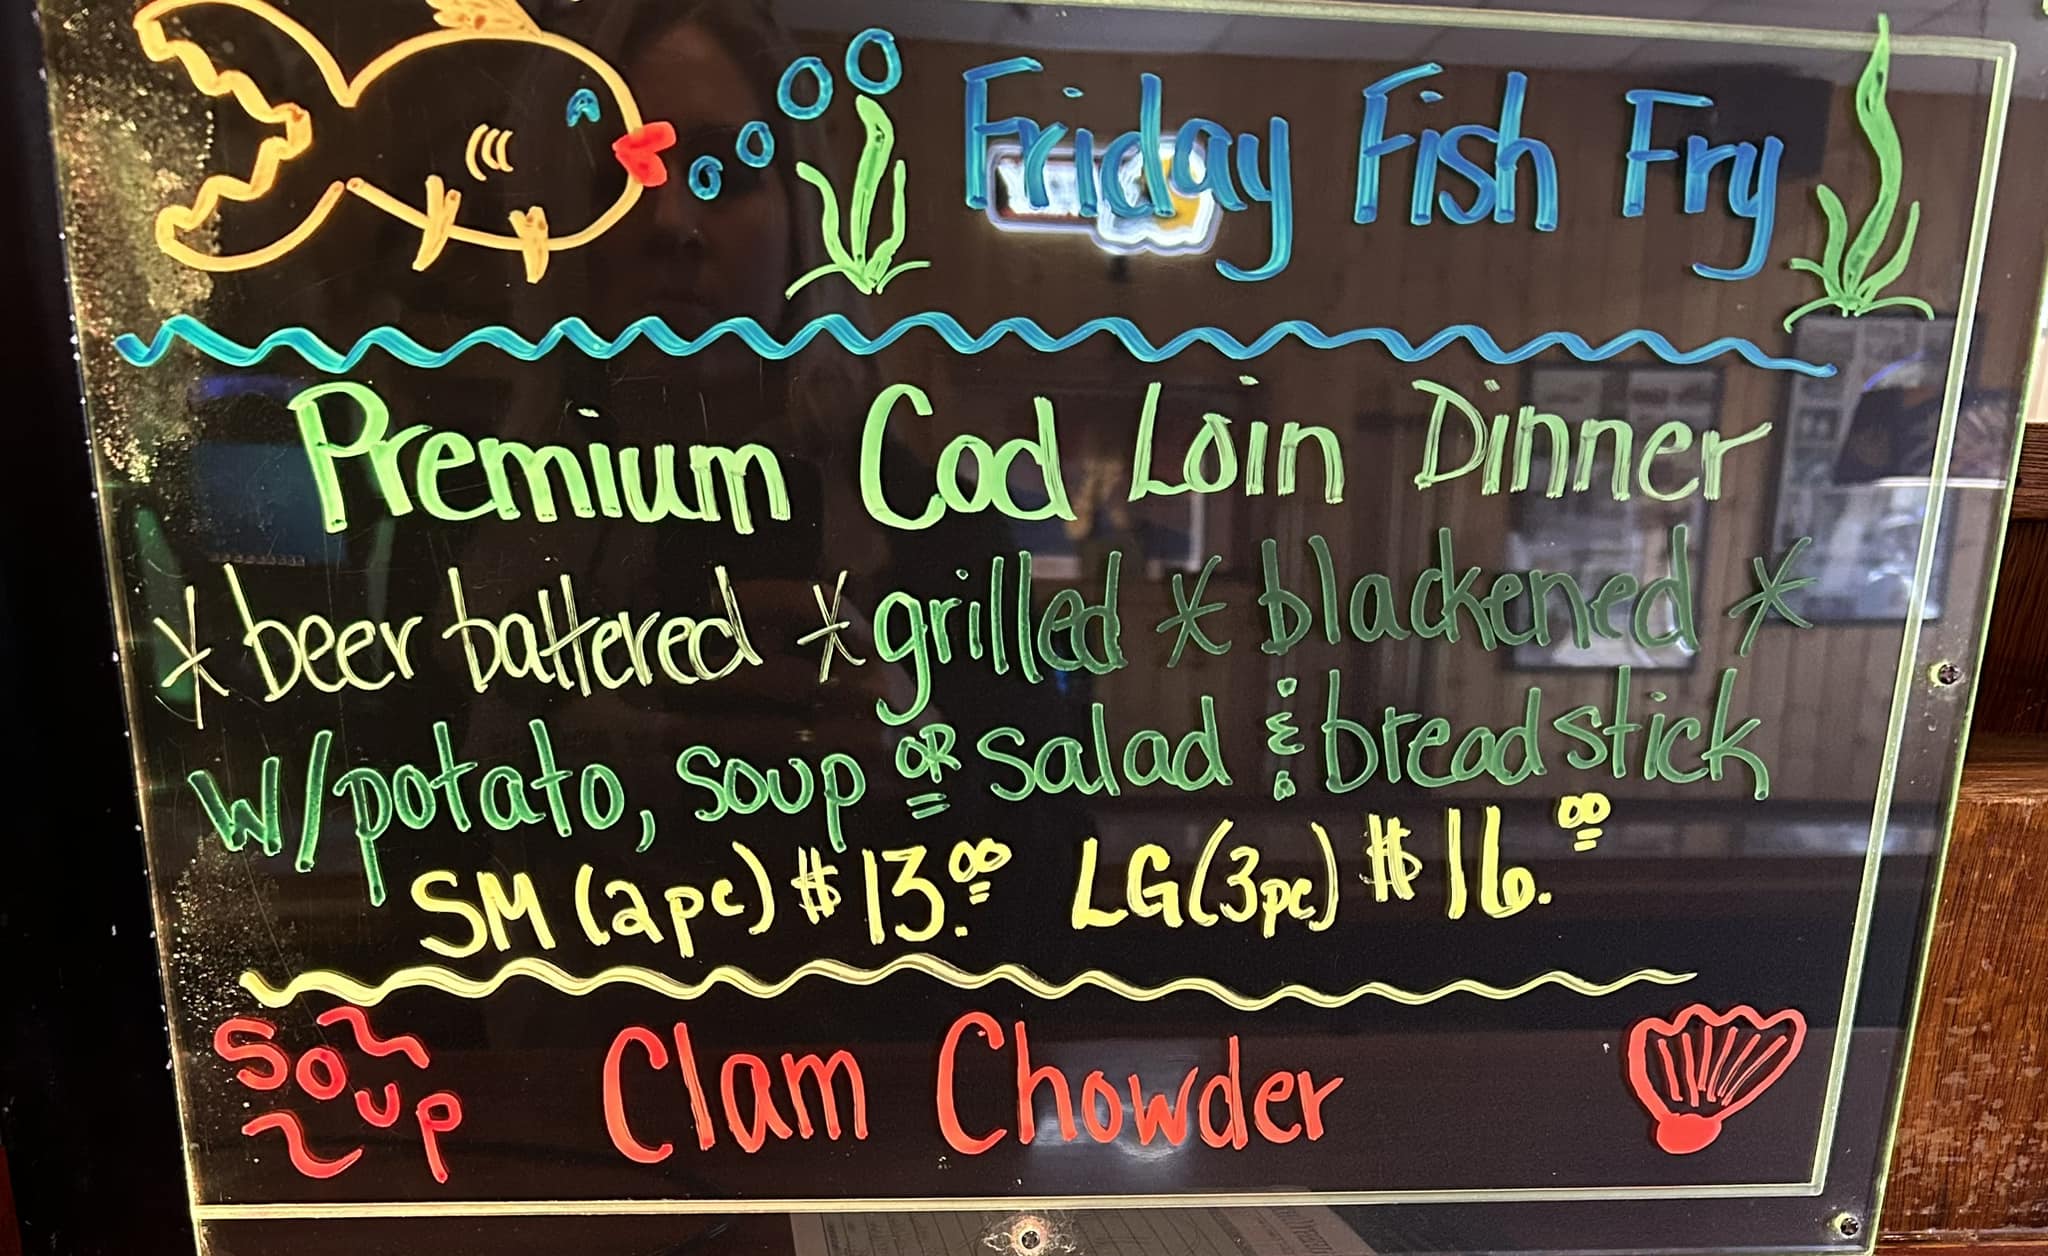 Friday Fish Fry
Premium Cod Loin Dinner
* beer battered * grilled * blackened *
w/potato, soup OR salad & breadstick
SM (2pc) $13.00 LG (3pc) $16.00
Soup Clam Chowder